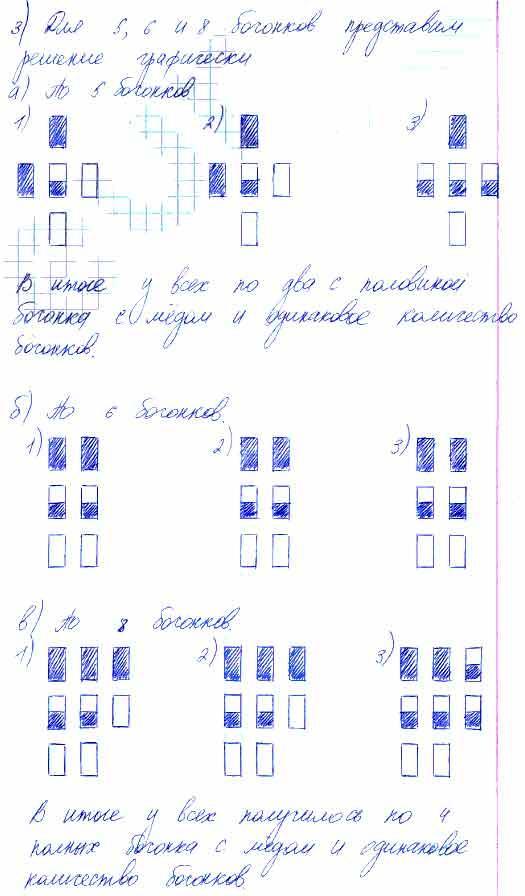 3) Для 5, 6 и 8 богонков представим
решение графически
а) По 5 богонков.
1) 2) 3)
В итоге у всех по два с половиной
богонка с мёдом и одинаковое количество
богонков.
б) По 6 богонков.
1) 2) 3)
в) По 8 богонков.
1) 2) 3)
В итоге у всех получилось по 4
полных богонка с мёдом и одинаковое
количество богонков.